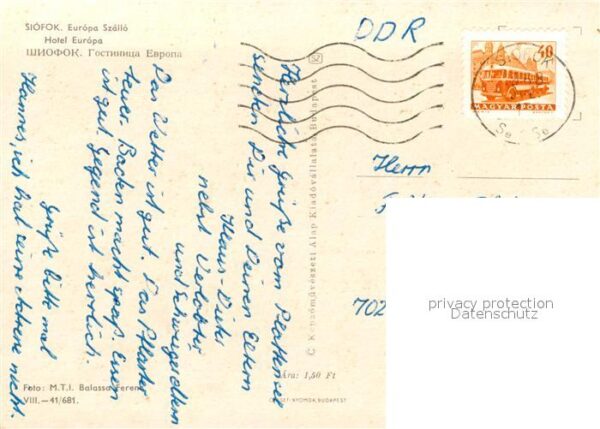 SIÓFOK. Európa Szálló
Hotel Európa
ШИОФОК. Гостиница Европа
DDR
40
MAGYAR POSTA
Herzliche Grüße vom Plattensee
senden Dir und Deinen Eltern
Klaus-Dieter
nebst Verlobte
und Schwiegereltern
Das Wetter ist gut. Das Pflaster
teuer. Baden macht Spaß. Essen
ist gut. Gegend ist herrlich.
Grüße bitte mal
Hannes, ich hab seine Adresse nicht.
Herrn
702
privacy protection
Datenschutz
© Képzőművészeti Alap Kiadóvállalata, Budapest
Ára: 1,50 Ft
OFFSET-NYOMDA, BUDAPEST
Foto: M.T.I. Balassa Ferenc
VIII.—41/681.